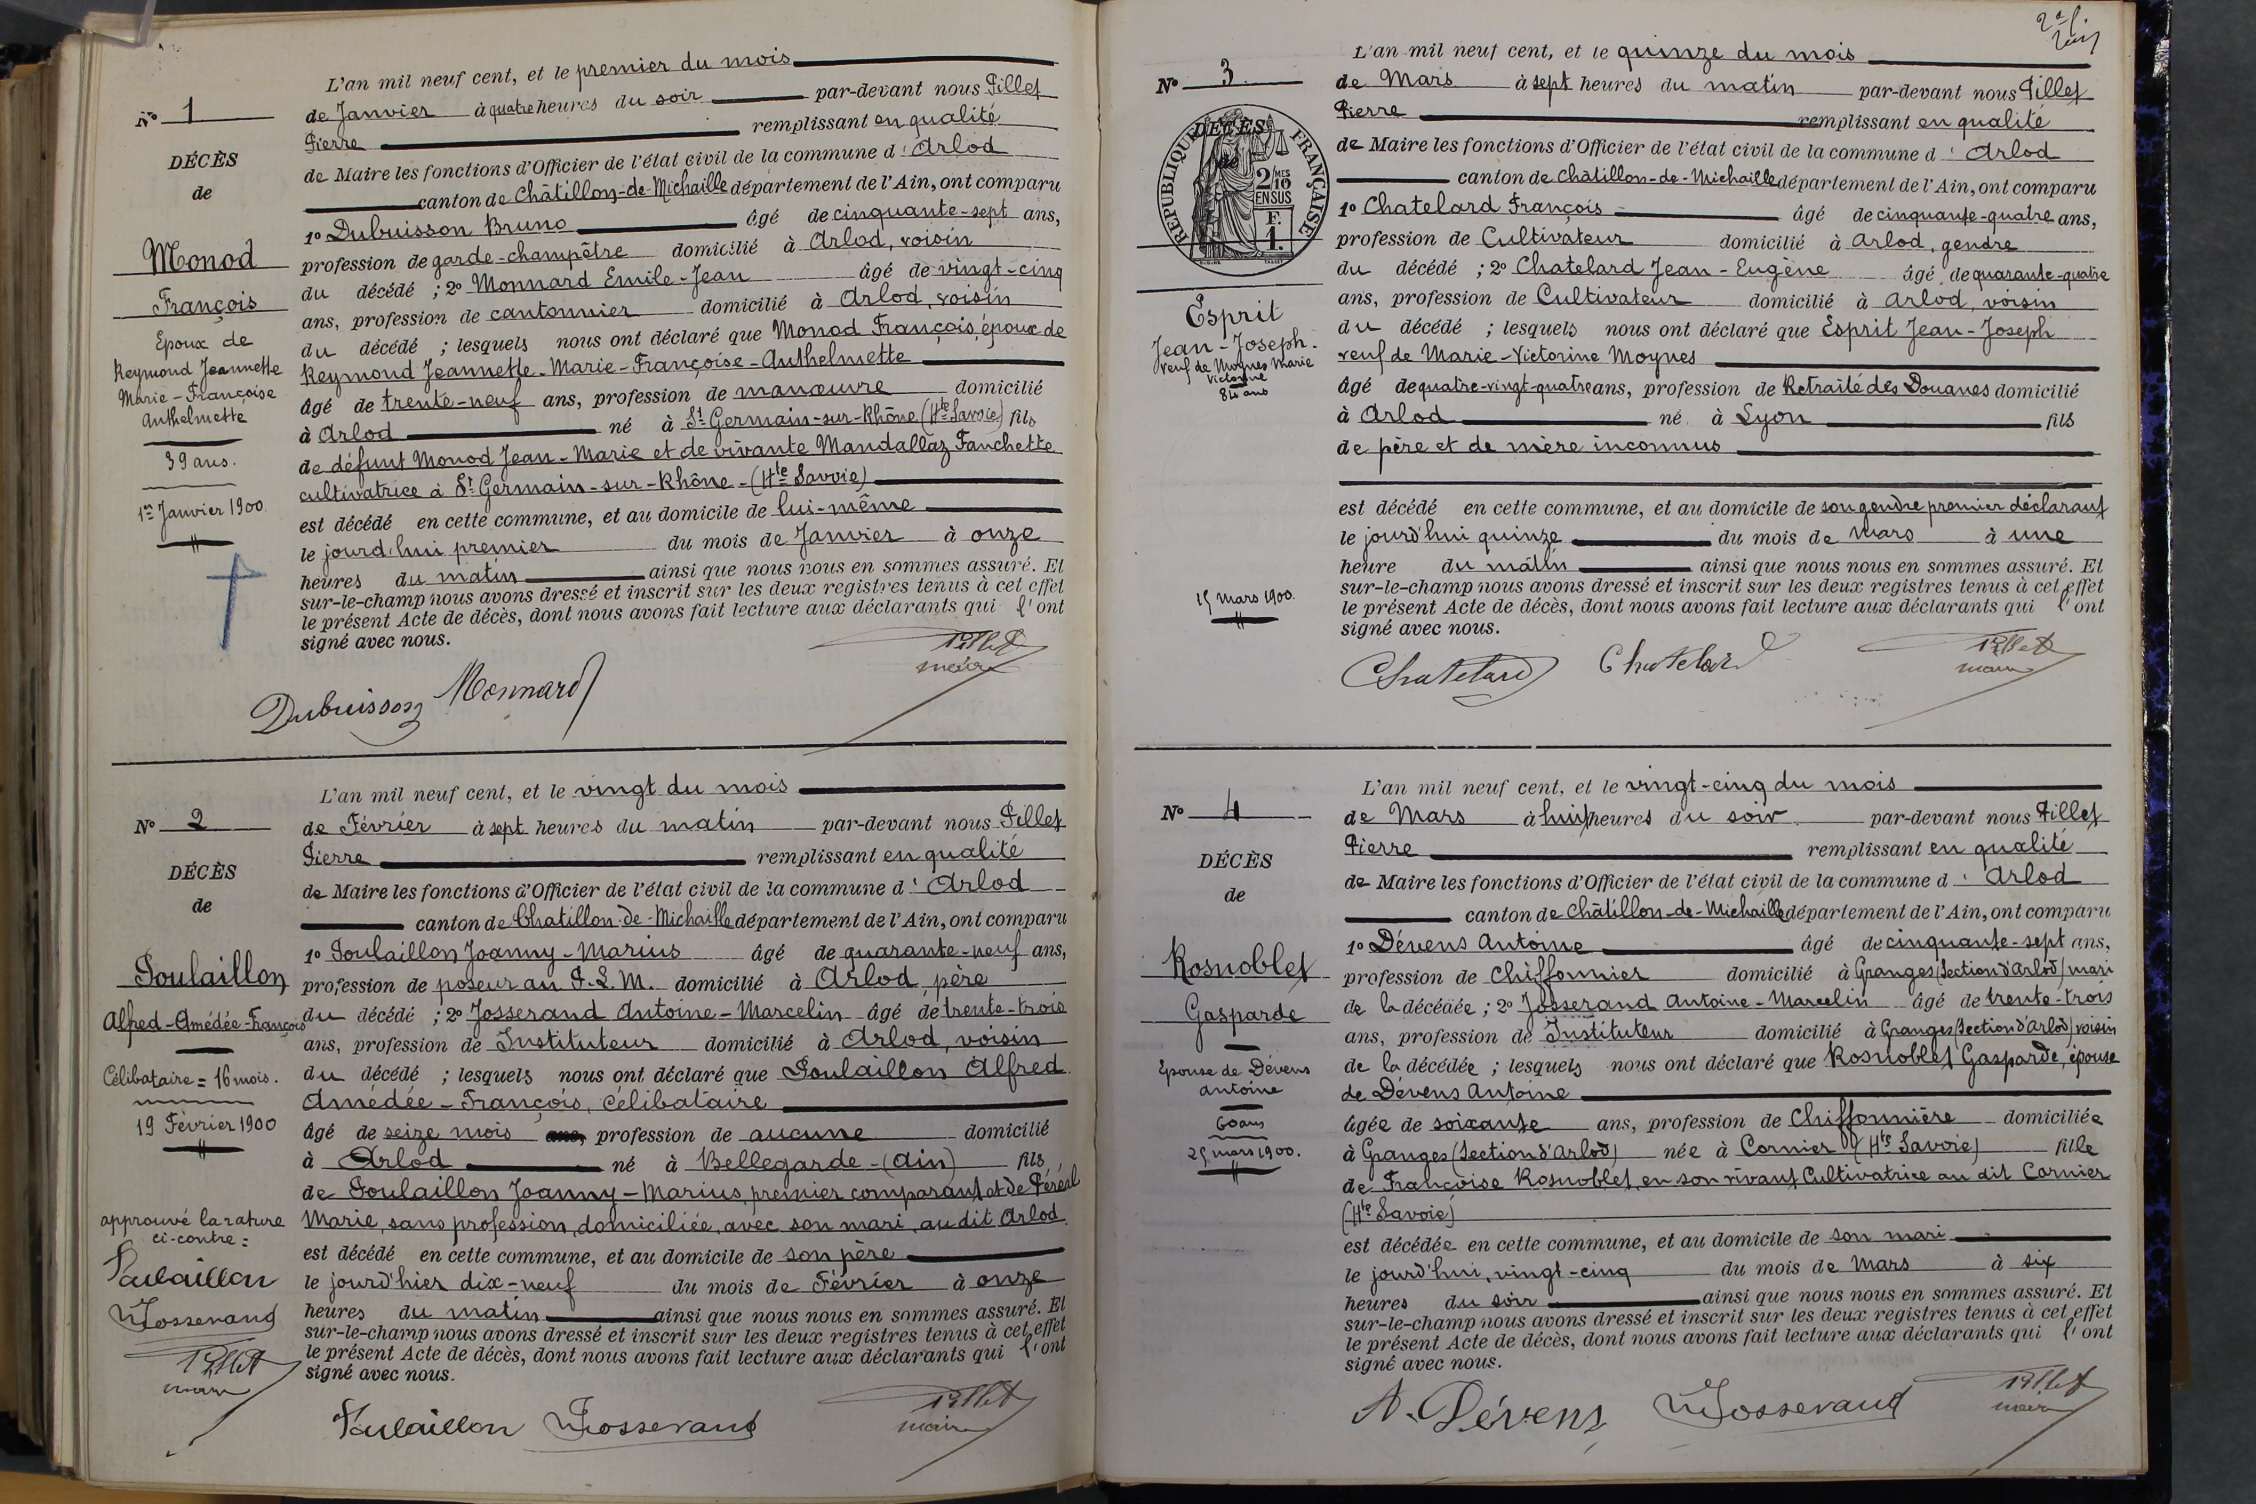 N° 1
DÉCÈS
de
Monod
François
Epoux de
Reymond Jeannette
Marie-Françoise
Anthelmette
39 ans.
1er Janvier 1900
L'an mil neuf cent, et le premier du mois
de Janvier à quatre heures du soir par-devant nous Pillet
Pierre remplissant en qualité
de Maire les fonctions d'Officier de l'état civil de la commune d'Arlod
canton de Châtillon-de-Michaille département de l'Ain, ont comparu
1° Dubuisson Bruno âgé de cinquante-sept ans,
profession de garde-champêtre domicilié à Arlod, voisin
du décédé ; 2° Monnard Emile-Jean âgé de vingt-cinq
ans, profession de cantonnier domicilié à Arlod, voisin
du décédé ; lesquels nous ont déclaré que Monod François, époux de
Reymond Jeannette-Marie-Françoise-Anthelmette
âgé de trente-neuf ans, profession de manœuvre domicilié
à Arlod né à St Germain-sur-Rhône (Hte Savoie) fils
de défunt Monod Jean-Marie et de vivante Mandallaz Fanchette
cultivatrice à St Germain-sur-Rhône-(Hte Savoie)
est décédé en cette commune, et au domicile de lui-même
le jourd'hui premier du mois de Janvier à onze
heures du matin ainsi que nous nous en sommes assuré. Et
sur-le-champ nous avons dressé et inscrit sur les deux registres tenus à cet effet
le présent Acte de décès, dont nous avons fait lecture aux déclarants qui l'ont
signé avec nous.
Pillet
maire
Dubuisson Monnard
N° 2
DÉCÈS
de
Poulaillon
Alfred-Amédée-François
Célibataire = 16 mois.
19 Février 1900
approuvé la rature
ci-contre :
Poulaillon
Josserand
Pillet
maire
L'an mil neuf cent, et le vingt du mois
de Février à sept heures du matin par-devant nous Pillet
Pierre remplissant en qualité
de Maire les fonctions d'Officier de l'état civil de la commune d'Arlod
canton de Chatillon-de-Michaille département de l'Ain, ont comparu
1° Poulaillon Joanny-Marius âgé de quarante-neuf ans,
profession de poseur au P.L.M. domicilié à Arlod, père
du décédé ; 2° Josserand Antoine-Marcelin âgé de trente-trois
ans, profession de Instituteur domicilié à Arlod, voisin
du décédé ; lesquels nous ont déclaré que Poulaillon Alfred
Amédée-François, célibataire
âgé de seize mois ans, profession de aucune domicilié
à Arlod né à Bellegarde-(Ain) fils
de Poulaillon Joanny-Marius, premier comparant et de
Marie, sans profession, domiciliée, avec son mari, au dit Arlod.
est décédé en cette commune, et au domicile de son père
le jourd'hier dix-neuf du mois de Février à onze
heures du matin ainsi que nous nous en sommes assuré. Et
sur-le-champ nous avons dressé et inscrit sur les deux registres tenus à cet effet
le présent Acte de décès, dont nous avons fait lecture aux déclarants qui l'ont
signé avec nous.
Poulaillon Josserand Pillet
maire
N° 3
DÉCÈS
de
RÉPUBLIQUE FRANÇAISE
2 MES
10
EN SUS
F.
1.
Esprit
Jean-Joseph.
veuf de Moynes Marie
Victorine
84 ans
15 mars 1900.
L'an mil neuf cent, et le quinze du mois
de Mars à sept heures du matin par-devant nous Pillet
Pierre remplissant en qualité
de Maire les fonctions d'Officier de l'état civil de la commune d'Arlod
canton de Châtillon-de-Michaille département de l'Ain, ont comparu
1° Chatelard François âgé de cinquante-quatre ans,
profession de Cultivateur domicilié à Arlod, gendre
du décédé ; 2° Chatelard Jean-Eugène âgé de quarante-quatre
ans, profession de Cultivateur domicilié à Arlod, voisin
du décédé ; lesquels nous ont déclaré que Esprit Jean-Joseph
veuf de Marie-Victorine Moynes
âgé de quatre-vingt-quatre ans, profession de Retraité des Douanes domicilié
à Arlod né à Lyon fils
de père et de mère inconnus
est décédé en cette commune, et au domicile de son gendre premier déclarant
le jourd'hui quinze du mois de Mars à une
heure du matin ainsi que nous nous en sommes assuré. Et
sur-le-champ nous avons dressé et inscrit sur les deux registres tenus à cet effet
le présent Acte de décès, dont nous avons fait lecture aux déclarants qui l'ont
signé avec nous.
Chatelard Chatelard Pillet
maire
N° 4
DÉCÈS
de
Rosnoblet
Gasparde
Epouse de Dévens
antoine
60 ans
25 mars 1900.
L'an mil neuf cent, et le vingt-cinq du mois
de Mars à huit heures du soir par-devant nous Pillet
Pierre remplissant en qualité
de Maire les fonctions d'Officier de l'état civil de la commune d'Arlod
canton de Châtillon-de-Michaille département de l'Ain, ont comparu
1° Dévens Antoine âgé de cinquante-sept ans,
profession de Chiffonnier domicilié à Granges (Section d'Arlod) mari
de la décédée ; 2° Josserand Antoine-Marcelin âgé de trente-trois
ans, profession de Instituteur domicilié à Granges (Section d'Arlod) voisin
de la décédée ; lesquels nous ont déclaré que Rosnoblet Gasparde, épouse
de Dévens Antoine
âgée de soixante ans, profession de Chiffonnière domiciliée
à Granges (Section d'Arlod) née à Cornier (Hte Savoie) fille
de Françoise Rosnoblet, en son vivant Cultivatrice au dit Cornier
(Hte Savoie)
est décédée en cette commune, et au domicile de son mari
le jourd'hui, vingt-cinq du mois de Mars à six
heures du soir ainsi que nous nous en sommes assuré. Et
sur-le-champ nous avons dressé et inscrit sur les deux registres tenus à cet effet
le présent Acte de décès, dont nous avons fait lecture aux déclarants qui l'ont
signé avec nous.
A. Dévens Josserand Pillet
maire